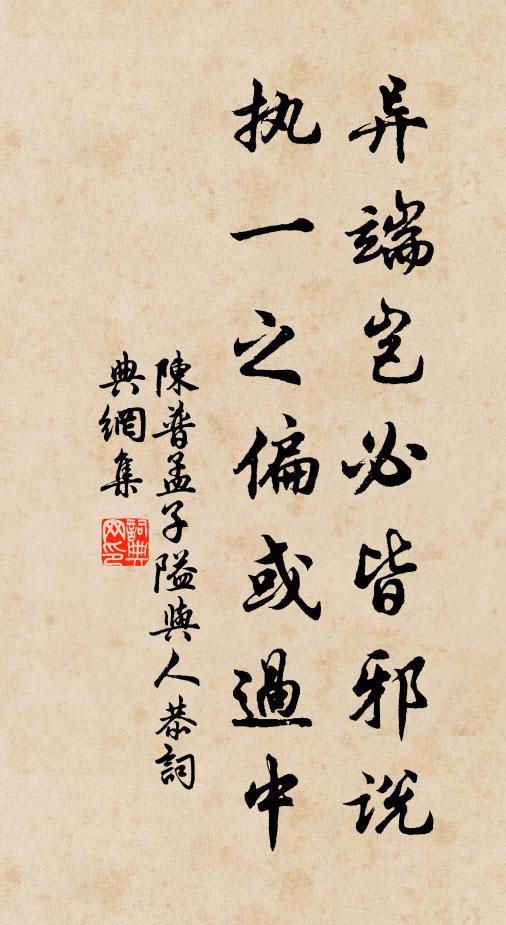 异端岂必皆邪说
执一之偏或過中
陳普孟子隘與人恭詞
典網集
詞典網印